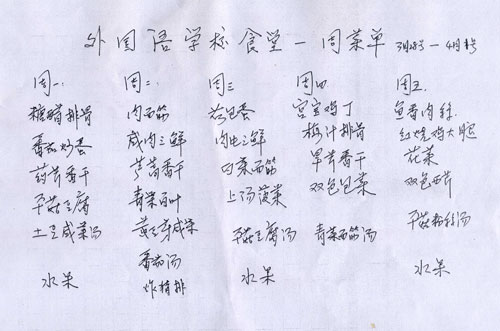 外国语学校食堂一周菜单 3月28号—4月1号
周一:
糖醋排骨
番茄炒蛋
药芹香干
平菇豆腐
土豆咸菜汤
水果
周二:
肉面筋
咸肉三鲜
香干
青菜百叶
黄豆芽咸菜
番茄汤
炸猪排
周三
荷包蛋
肉皮三鲜
白菜面筋
上汤菠菜
平菇豆腐汤
水果
周四
宫宝鸡丁
梅汁排骨
旱芹香干
双色包菜
青菜面筋汤
周五:
鱼香肉丝
红烧鸡大腿
花菜
双色西芹
平菇粉丝汤
水果